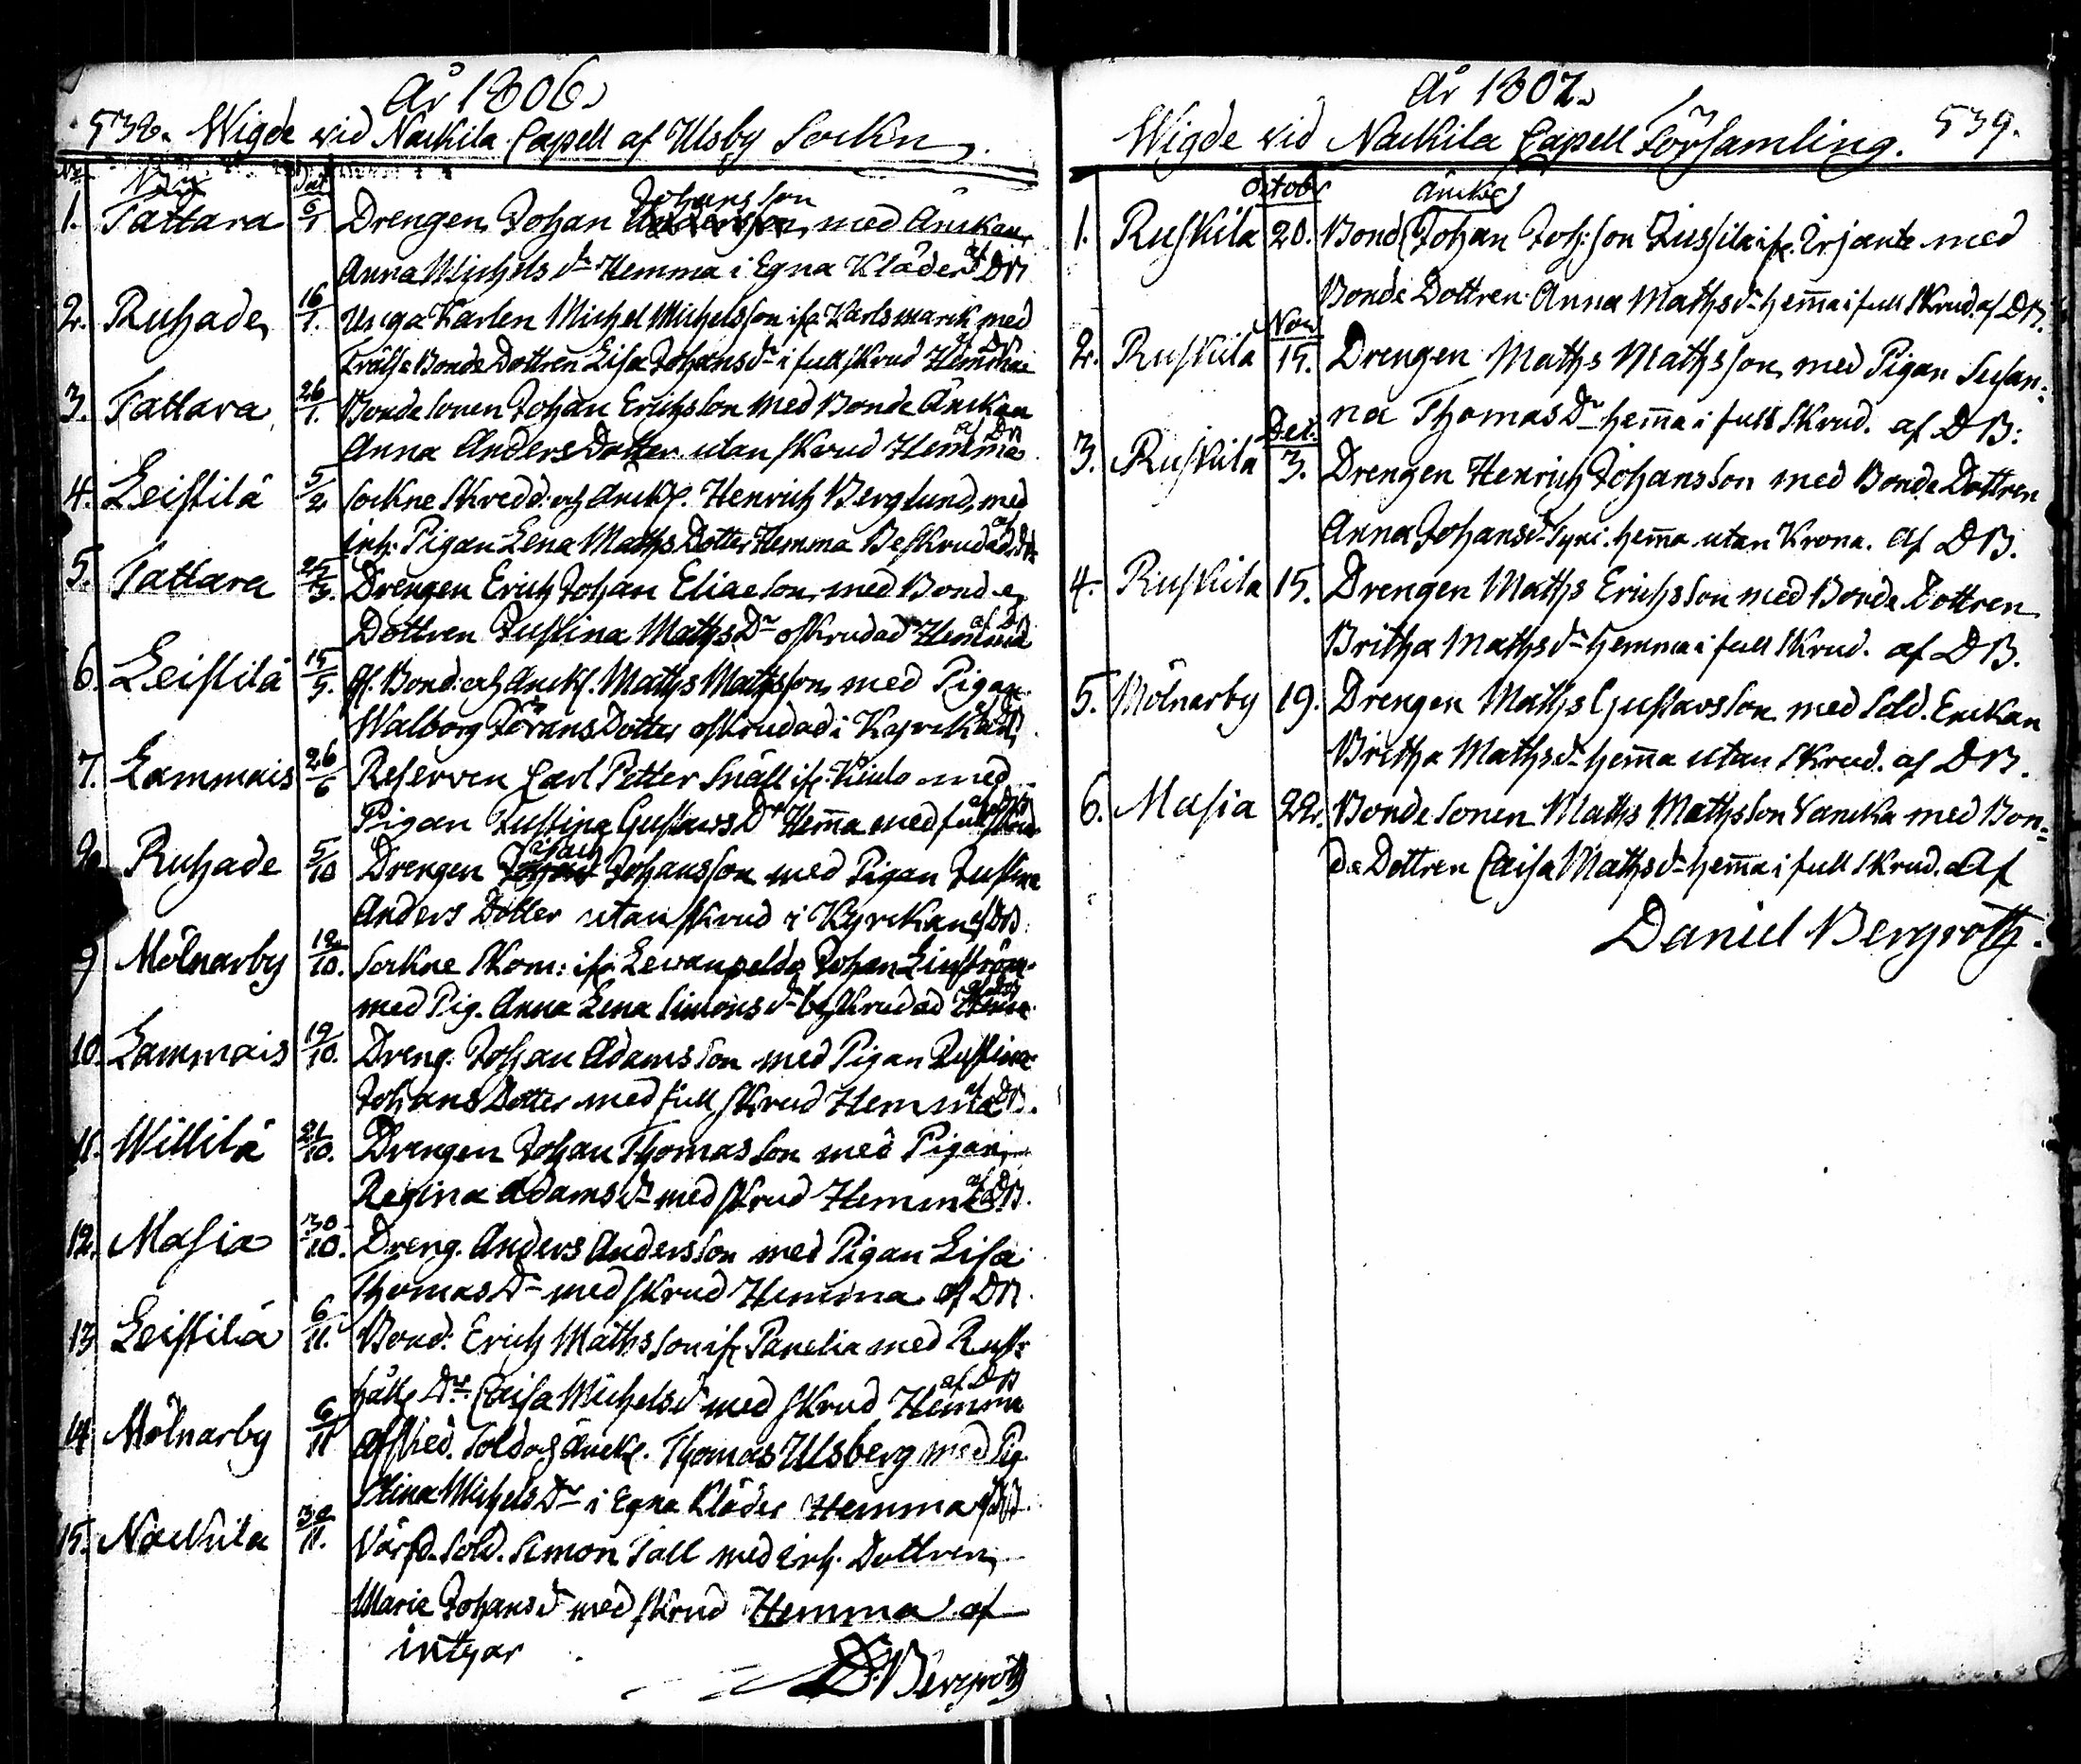 År 1806.
538. Wigde vid Nackila Capell af Ulfsby Sockn.
No Byar Dat
1. Tattara 6/1 Drengen Johan Johansson med Änckan
Anna Michels dr Hemma i Egna Kläder af DB
2. Ruhade 16/1. Unga Karlen Michel Michelsson ifr. Karlsmarck med
Frälse Bonde Dottren Lisa Johans dr i full skrud Hemma af DB
3. Tattara 26/1. Bonde Sonen Johan Erichsson med Bonde Änckan
Anna Anders Dotter utan skrud Hemma af DB
4. Leistilä 5/2 Sockne Skredd: och Änckl. Henrich Berglund med
inh: Pigan Lena Maths Dotter Hemma Beskrudad af DB
5. Tattara 25/3. Drengen Erich Johan Eliaeson med Bonde
Dottren Justina Maths Dr oskrudad Hemma af DB
6. Leistilä 15/5. Gl. Bond: och Änckl. Maths Mathsson med Pigan
Walborg Jörans Dotter oskrudad i Kyrckan af DB
7. Lammais 26/6 Reserven Carl Petter Snäll ifr. Kiulo med
Pigan Justina Gustaws Dr Hem̄a med full skrud af DB
8. Ruhade 5/10 Drengen Esaias Johansson med Pigan Justina
Anders Dotter utan skrud i Kyrckan af DB.
9 Mölnarby 12/10. Sockne Skom: ifr. Lewanpeldo Johan Linström
med Pig. Anna Lena Simons dr beskrudad Hemma af DB
10. Lammais 19/10. Dreng. Johan Adamsson med Pigan Justina
Johans Dotter med full skrud Hemma af DB.
11. Willilä 21/10. Drengen Johan Thomasson med Pigan
Regina Adams dr med skrud Hemma af DB.
12. Masia 30/10. Dreng. Anders Andersson med Pigan Lisa
Thomas Dr med skrud Hemma af DB.
13 Leistilä 6/11. Bond: Erich Mathsson ifr. Panelia med Rust-
håll: Dr. Caisa Michels dr med skrud Hemma af DB
14 Mölnarby 6/11 Afsked. Sold och Änckl. Thomas Ulsberg med Pig
Stina Michels Dr i Egna Kläder Hemma af DB.
15. Nackila 30/11. Värfd. Sold. Simon Tall med inh. Dottren
Maria Johans dr med skrud Hemma af
intygar
D. Bergroth
År 1807.
Wigde vid Nackila Capell Församling. 539.
Octobr
1. Ruskila 20. Bond Änckl. Johan Joh:son Jussila ifr. Irjante med
Bonde Dottren Anna Maths dr hem̄a i full skrud. af DB.
Nov
2. Ruskila 15. Drengen Maths Mathsson med Pigan Susan:
na Thomas Dr hem̄a i full skrud. af DB:
Dec.
3. Ruskila 3. Drengen Henrich Johansson med Bonde Dottren
Anna Johans dr Syni. hem̄a utan Krona. af DB.
4. Ruskila 15. Drengen Maths Erichsson med Bonde Dottren
Britha Maths dr hemma i full skrud. af DB.
5. Mölnarby 19. Drengen Maths Gustavsson med Sold. Enckan
Britha Maths dr hem̄a utan skrud. af DB.
6. Masia 22. Bonde Sonen Maths Mathsson Yancka med Bon:
de Dottren Caisa Maths dr hem̄a i full skrud. Af
Daniel Bergroth.